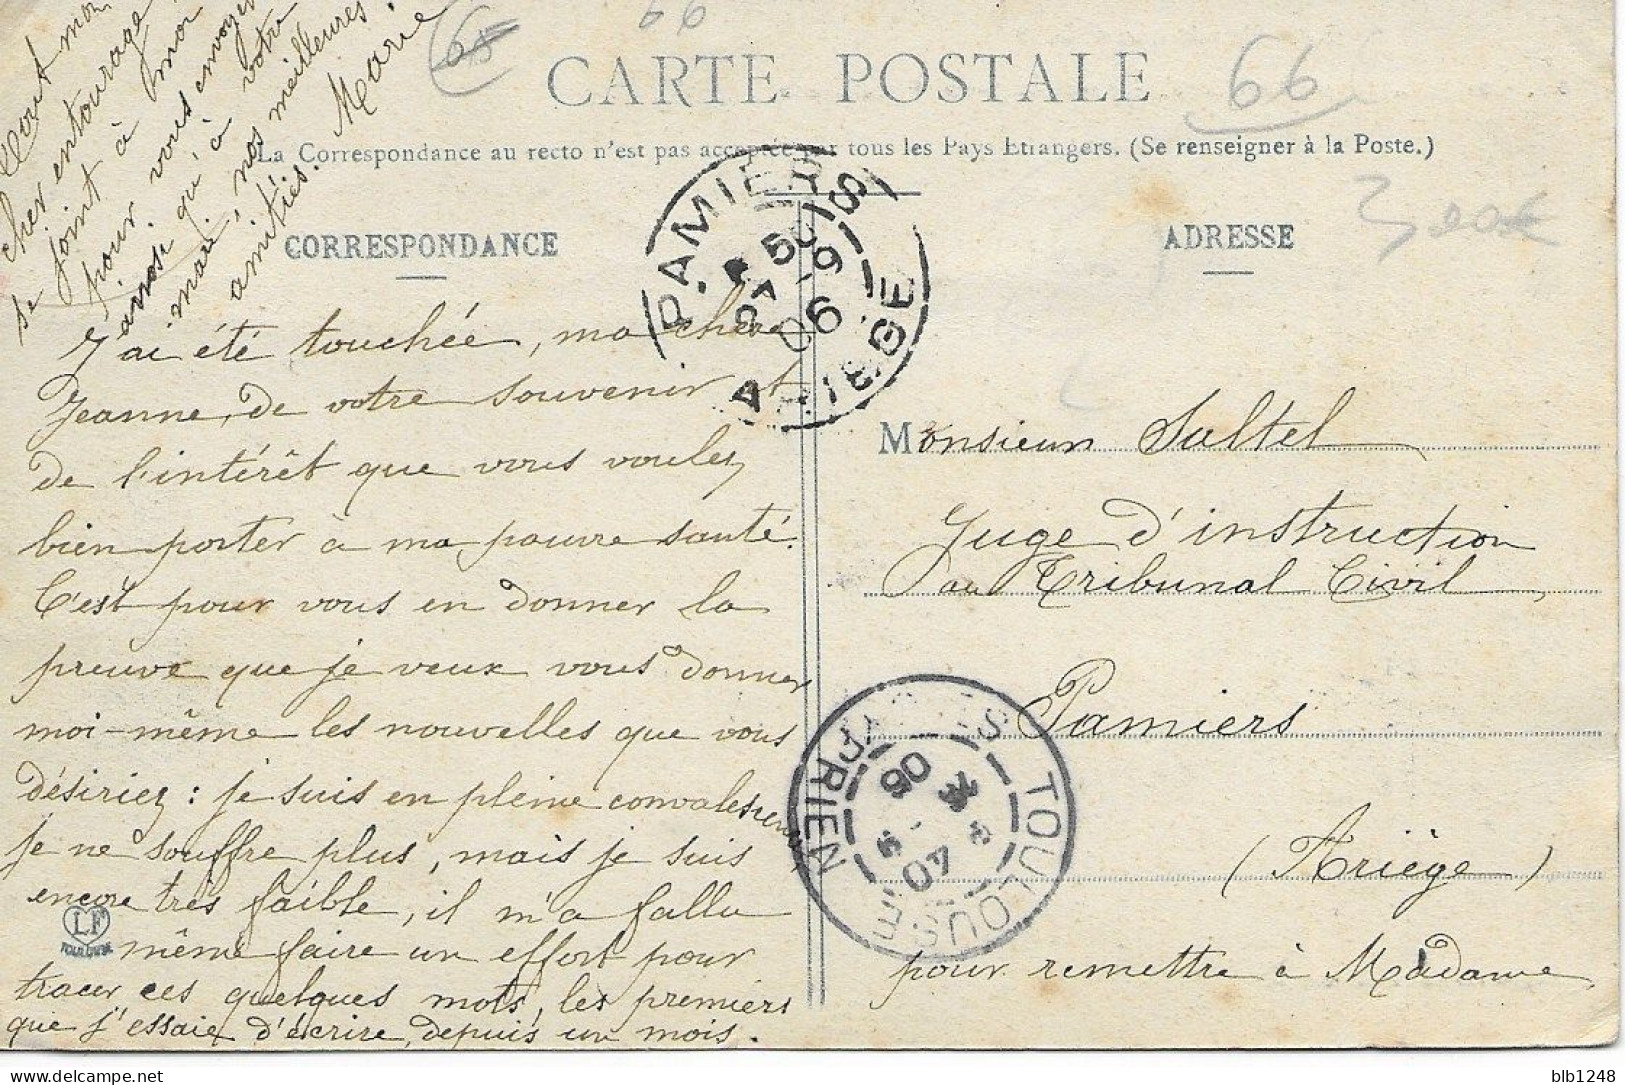 66
66
66
CARTE POSTALE
La Correspondance au recto n'est pas acceptée par tous les Pays Etrangers. (Se renseigner à la Poste.)
CORRESPONDANCE
ADRESSE
J'ai été touchée, ma chère
Jeanne, de votre souvenir et
de l'intérêt que vous voulez
bien porter à ma pauvre santé.
C'est pour vous en donner la
preuve que je veux vous donner
moi-même les nouvelles que vous
désiriez : je suis en pleine convalescence,
je ne souffre plus, mais je suis
encore très faible, il m'a fallu
même faire un effort pour
tracer ces quelques mots, les premiers
que j'essaie d'écrire, depuis un mois.
Tout mon
cher entourage
se joint à moi
pour vous envoyer
ainsi qu'à votre
mari, nos meilleures
amitiés. Marie
Monsieur Saltel
Juge d'instruction
au Tribunal Civil,
Pamiers
(Ariège)
pour remettre à Madame
PAMIERS
ARIEGE
5
9
06
TOULOUSE
06
LF
TOULOUSE
delcampe.net
blb1248